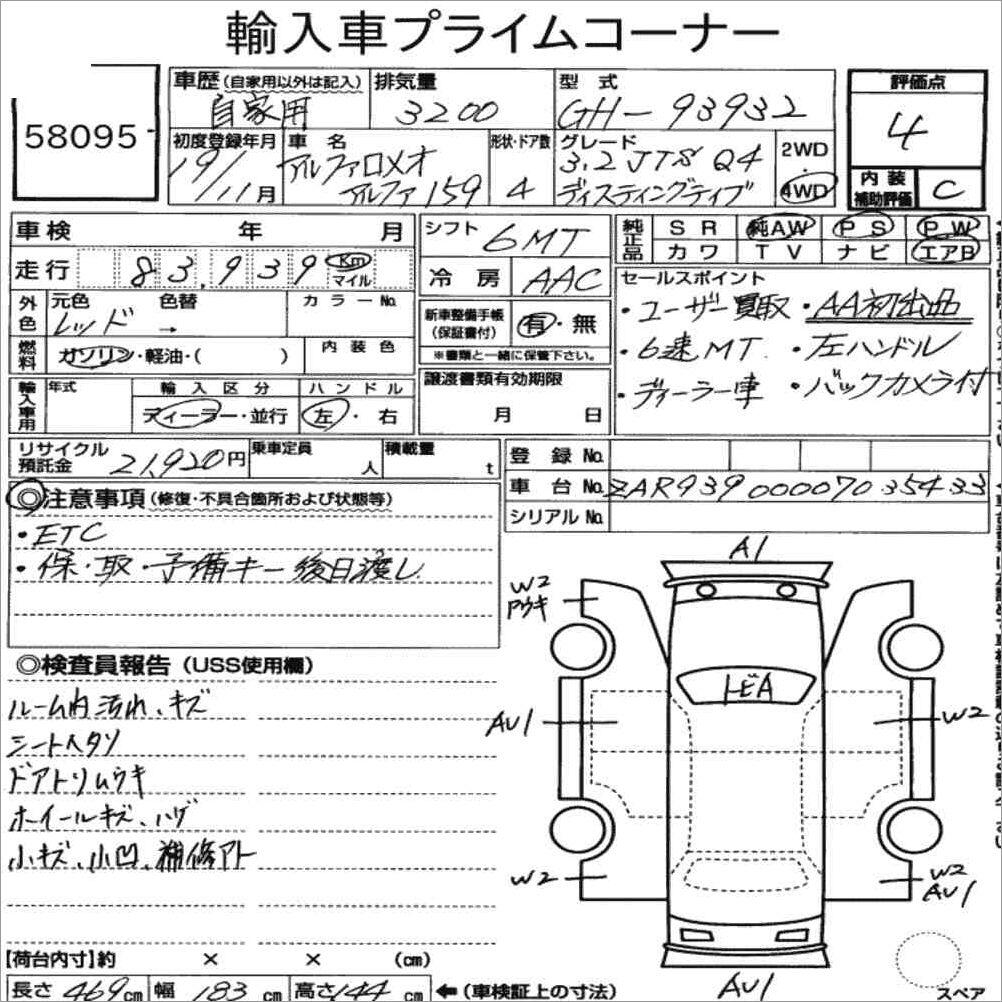 輸入車プライムコーナー
58095
車歴(自家用以外は記入)
自家用
排気量
3200
型式
GH-93932
評価点
4
初度登録年月
19/11月
車名
アルファロメオ
アルファ159
形状・ドア数
4
グレード
3.2 JTS Q4
ディスティンクティブ
2WD
4WD
内装
補助評価
C
車検 年 月
走行 83,939 Km
マイル
シフト 6MT
冷房 AAC
純正品
SR 純AW PS PW
カワ TV ナビ エアB
外色
元色 色替 カラーNo.
レッド →
燃料
ガソリン・軽油・( )
内装色
新車整備手帳
(保証書付)
有・無
※書類と一緒に保管下さい。
セールスポイント
・ユーザー買取 ・AA初出品
・6速MT ・左ハンドル
・ディーラー車 ・バックカメラ付
輸入車用
年式
輸入区分
ディーラー・並行
ハンドル
左・右
譲渡書類有効期限
月 日
リサイクル
預託金 21,920円
乗車定員
人
積載量
t
登録No.
車台No. ZAR93900007035433
シリアルNo.
◎注意事項(修復・不具合箇所および状態等)
・ETC
・保・取・予備キー後日渡し
◎検査員報告(USS使用欄)
ルーム内汚れ、キズ
シートヘタリ
ドアトリムウキ
ホイールキズ、ハゲ
小キズ、小凹、補修アト
A1
W2
アウキ
トビA
AU1
W2
W2
W2
AU1
AU1
スペア
【荷台内寸】約 × × (cm)
長さ 469cm 幅 183cm 高さ 144cm ←(車検証上の寸法)